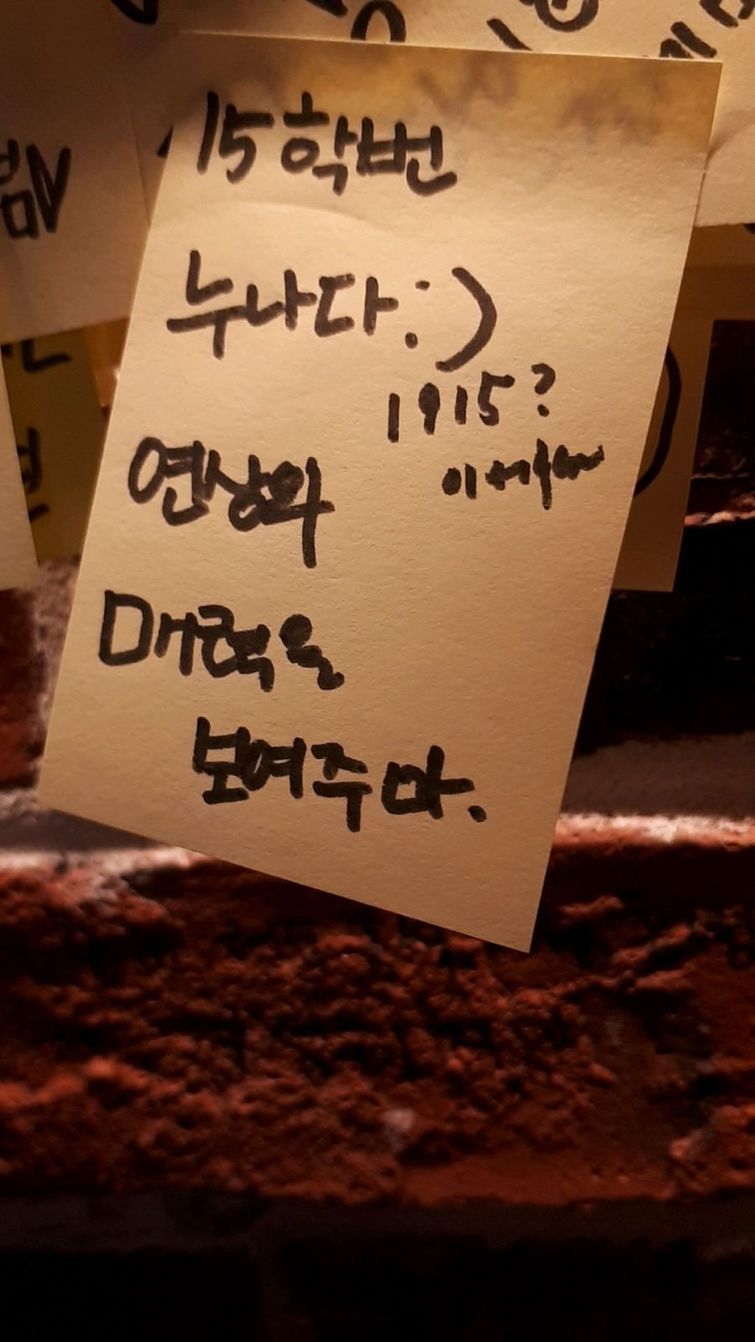 15학번
누나다:)
1915?
연상의
매력을
보여주마.